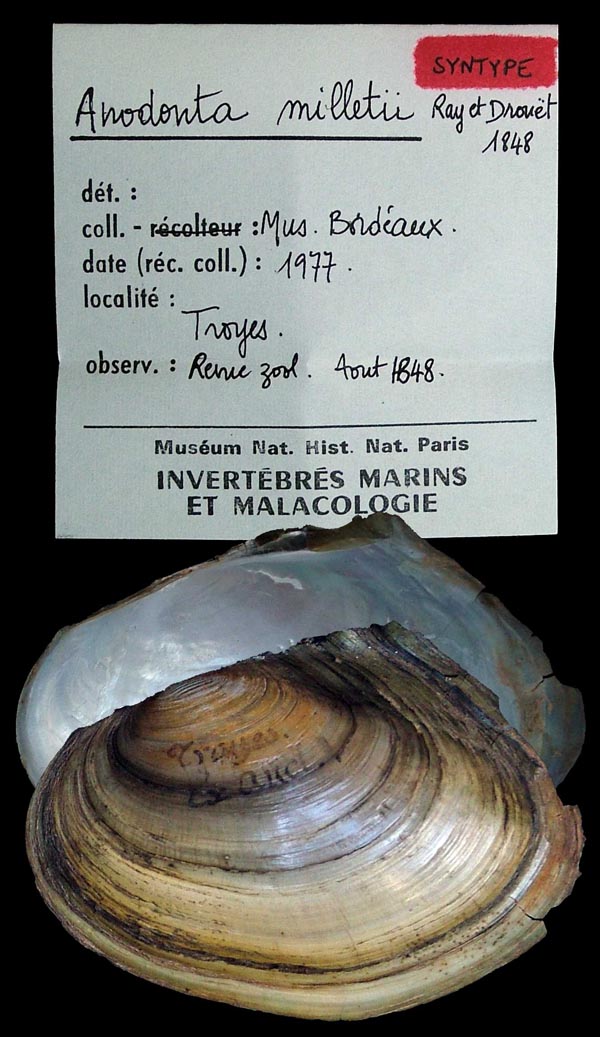 SYNTYPE
Anodonta milletii Ray et Drouët
1848
dét. :
coll. - récolteur : Mus. Bordeaux.
date (réc. coll.) : 1977.
localité :
Troyes.
observ. : Revue zool. Aout 1848.
Muséum Nat. Hist. Nat. Paris
INVERTÉBRÉS MARINS
ET MALACOLOGIE
Troyes.